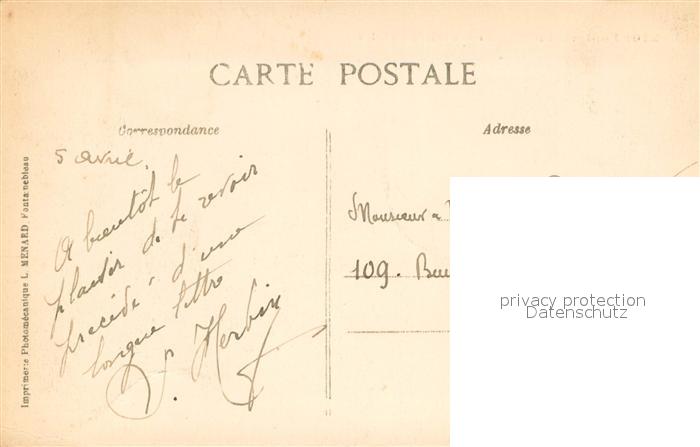 CARTE POSTALE
Correspondance
Adresse
5 avril.
A bientôt le
plaisir de te revoir
précédé d'une
longue lettre
P. Herbin
Monsieur
109.
Imprimerie Photomécanique L. MENARD Fontainebleau
privacy protection
Datenschutz